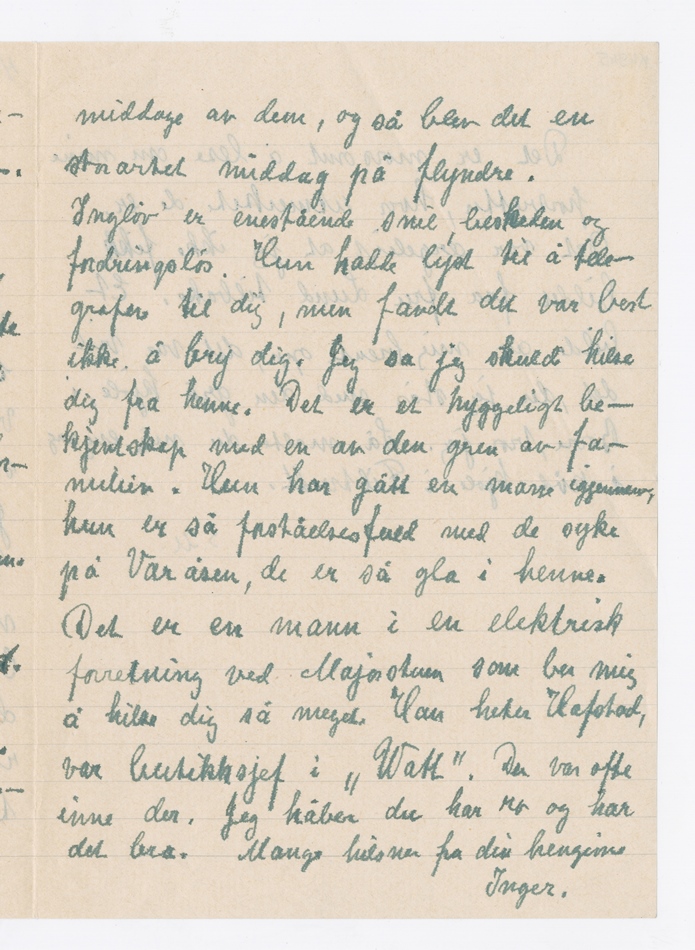 middage av dem, og så blev det en
storartet middag på flyndre.
Ingløv er enestående snil, beskeden og
fordringsløs. Hun hadde lyst til å tele-
grafere til dig, men fandt det var best
ikke å bry dig. Jeg sa jeg skulde hilse
dig fra henne. Det er et hyggeligt be-
kjentskap med en av den gren av fa-
milien. Hun har gått en masse igjennem,
hun er så forståelsesfuld med de syke
på Varåsen, de er så gla i henne.
Det er en mann i en elektrisk
forretning ved Majorstuen som ber mig
å hilse dig så meget. Han heter Hafstad,
var butikksjef i "Watt". Du var ofte
inne der. Jeg håber du har ro og har
det bra. Mange hilsner fra din hengivne
Inger.